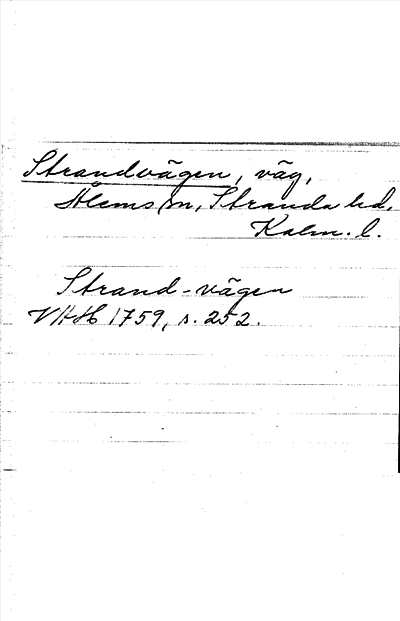 Strandvägen, väg,
Ålems sn, Stranda hd,
Kalm. l.
Strand-vägen
VHAH 1759, s. 252.